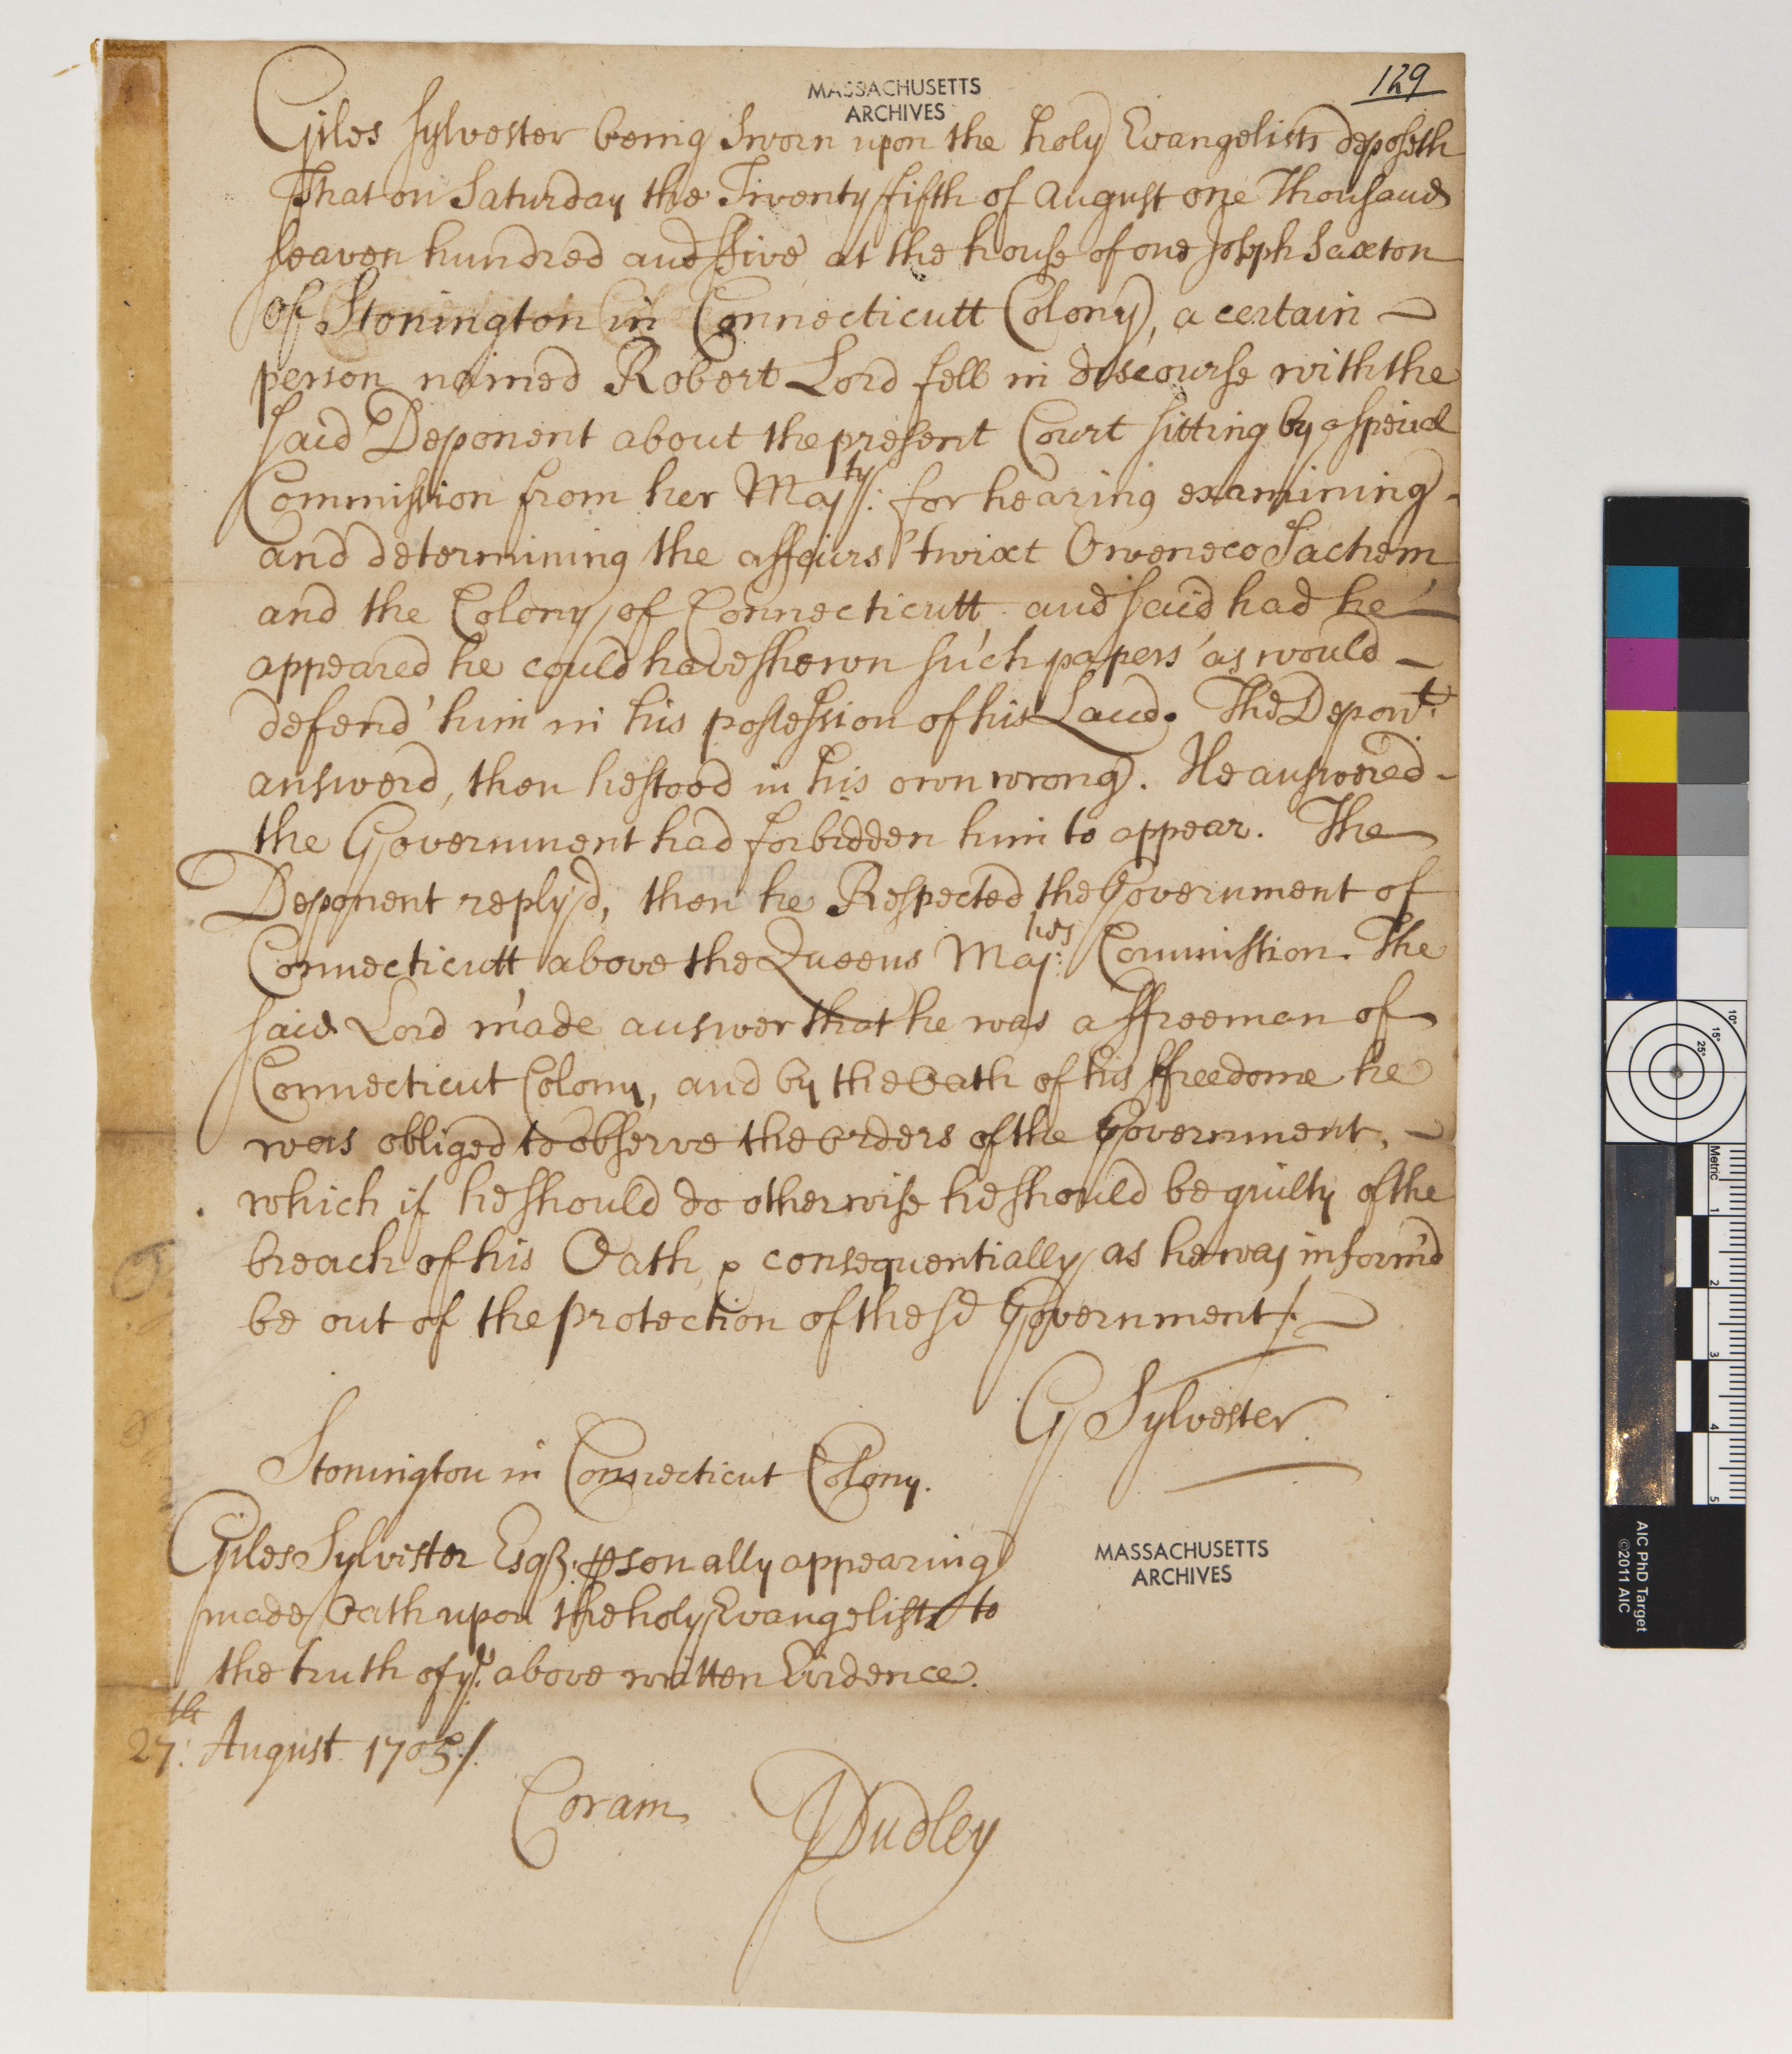 129
MASSACHUSETTS
ARCHIVES
Giles Sylvester being Sworn upon the holy Evangelists deposeth
That on Saturday the Twenty fifth of August one Thousand
seaven hundred and ffive at the house of one Joseph Saxton
of Stonington in Connecticutt Colony, a certain
person named Robert Lord fell in discourse with the
said Deponent about the present Court sitting by a speical
Commission from her Maj:ty for hearing examining
and determining the affairs 'twixt Oweneco Sachem
and the Colony of Connecticutt and said had he
appeared he could have shewn such papers as would
defend him in his possession of his Land. The Depont:
answerd, then he stood in his own wrong. He answered
the Government had forbidden him to appear. The
Deponent reply'd, then he Respected the Government of
Connecticutt above the Queens Maj:ties Commission. The
said Lord made answer that he was a ffreeman of
Connecticut Colony, and by the Oath of his ffreedome he
was obliged to observe the orders of the Government,
which if he should do otherwise he should be guilty of the
breach of his Oath, & consequentially as he was inform'd
be out of the protection of the sd Government/.
G Sylvester
Stonington in Connecticut Colony.
Giles Sylvister Esqr. psonally appearing
made Oath upon the holy Evangelists to
the truth of ye above written Evidence.
27th: August 1705/.
Coram JDudley
MASSACHUSETTS
ARCHIVES
10°
15°
25°
Metric
1
2
3
4
5
AIC PhD Target
©2011 AIC